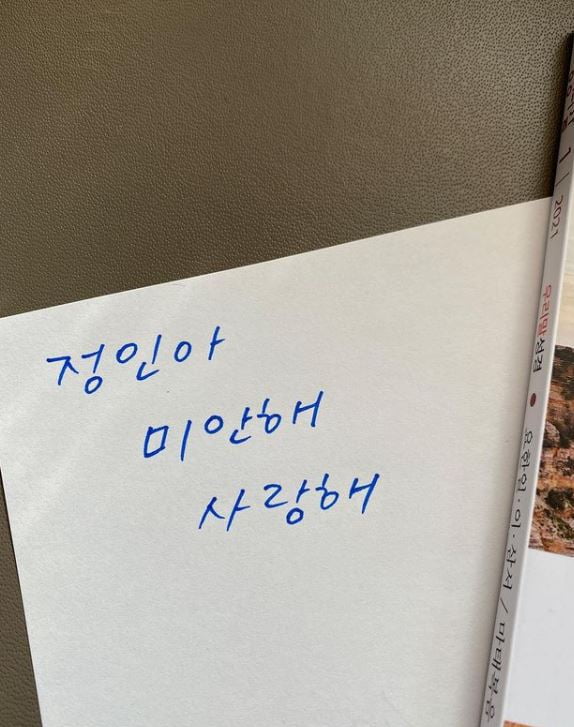 정인아
미안해
사랑해
1 | 2021
우리말성경 • 요한일·이·삼서 / 마태복음